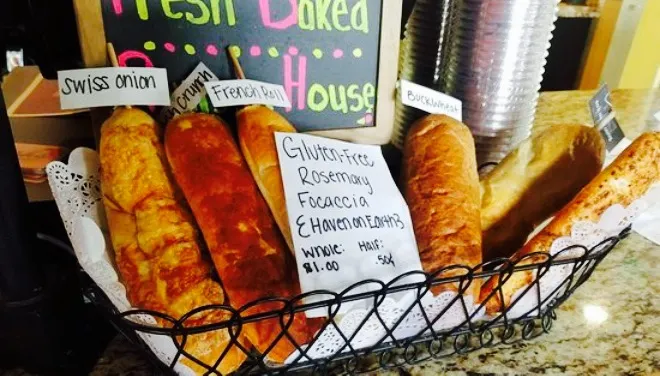 Fresh Baked
House
swiss onion
crunch
French Roll
Buckwheat
Gluten-Free
Rosemary
Focaccia
{Haven on Earth}
Whole: Half:
$1.00 .50¢